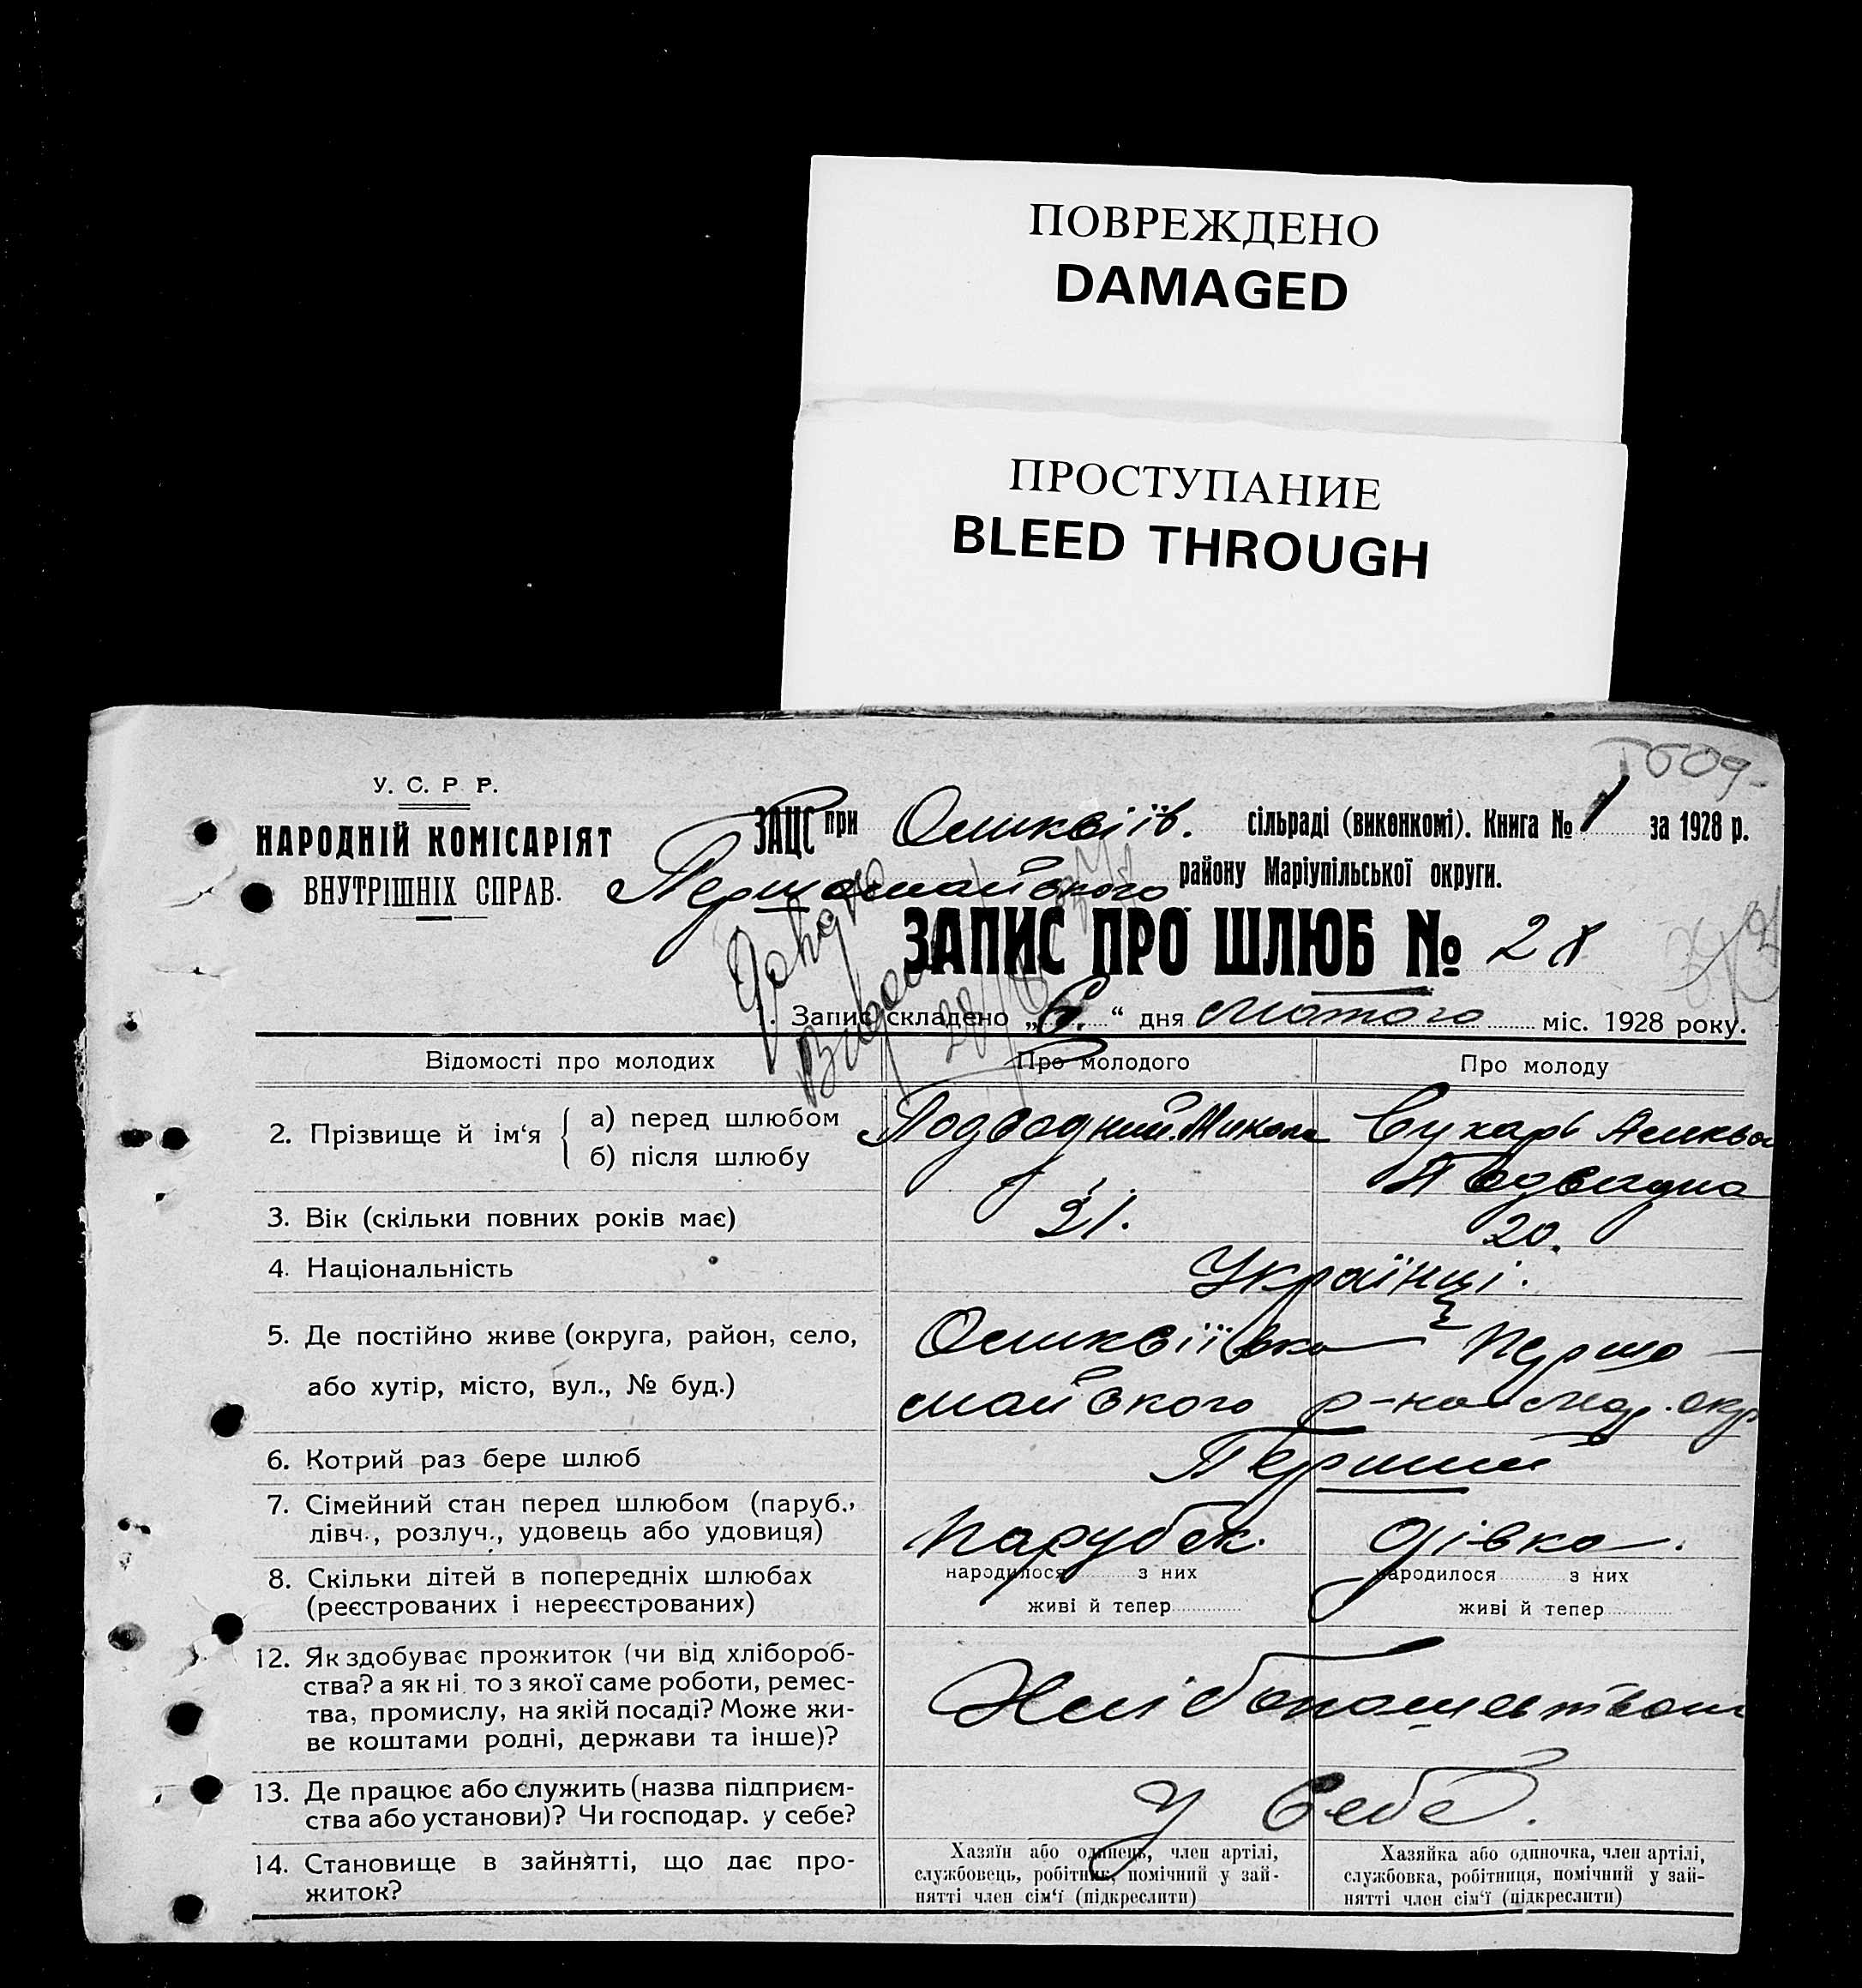 ПОВРЕЖДЕНО
DAMAGED
ПРОСТУПАНИЕ
BLEED THROUGH
У. С. Р. Р.
НАРОДНІЙ КОМІСАРІЯТ
ВНУТРІШНІХ СПРАВ.
ЗАЦС при сільраді (виконкомі). Книга № 1 за 1928 р.
Першомайського району Маріупільської округи.
ЗАПИС ПРО ШЛЮБ № 28
1. Запис складено „6.“ дня лютого міс. 1928 року.
Відомості про молодих Про молодого Про молоду
2. Прізвище й ім‘я { а) перед шлюбом Подводний Микола Сухарь
б) післа шлюбу
3. Вік (скільки повних років має) 21. 20.
4. Національність Українці.
5. Де постійно живе (округа, район, село, Першо-
або хутір, місто, вул., № буд.) майского р-на Мар. окр
6. Котрий раз бере шлюб Перший
7. Сімейний стан перед шлюбом (паруб.,
дівч., розлуч., удовець або удовиця) парубок. дівка.
8. Скільки дітей в попередніх шлюбах народилося з них народилося з них
(реєстрованих і нереєстрованих) живі й тепер живі й тепер
12. Як здобуває прожиток (чи від хлібороб-
ства? а як ні то з якої саме роботи, ремес-
тва, промислу, на якій посаді? Може жи-
ве коштами родні, держави та інше)?
13. Де працює або служить (назва підприєм-
ства або установи)? Чи господар. у себе? У себе.
14. Становище в зайнятті, що дає про-
житок?
Хазяїн або одинець, член артілі,
службовець, робітник, помічний у зай-
нятті член сім‘ї (підкреслити)
Хазяйка або одиночка, член артілі,
службовка, робітниця, помічний у зай-
нятті член сім‘ї (підкреслити)